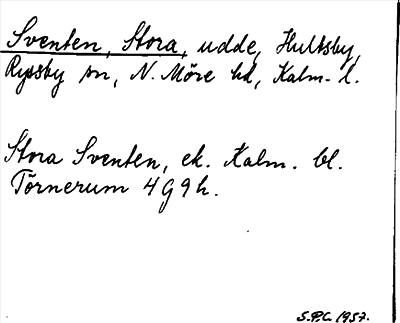 Sventen, Stora, udde, Hultsby,
Ryssby sn, N. Möre hd, Kalm. l.
Stora Sventen, ek. Kalm. bl.
Törnerum 4 G 9 h.
S.P.C. 1957.